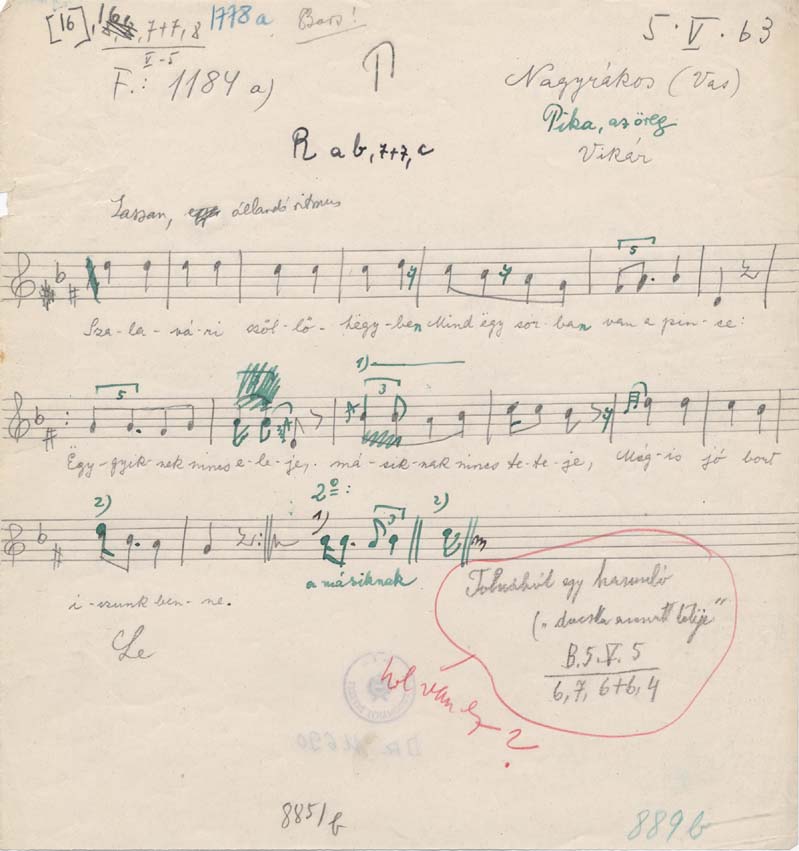 [16], 16, 7+7, 8 1778 a
V-5
F.: 1184 a)
5 · V · 63
Nagyrákos (Vas)
Pika, az öreg
Vikár
R a b, 7+7, c
Lassan, állandó ritmus
5
Sza-la-vá-ri szöl-lő-hëgy-ben Mind ëgy sor-ban van a pin-se:
5 1) 3
Ëgy-gyik-nek nincs e-le-je, má-sik-nak nincs te-te-je, Még-is jó bort
2) 2º: 1) 3 2)
a másiknak
i-szunk ben-ne.
Le
Tolnából egy hasonló
B.5.V.5
6, 7, 6+6, 4
hol van ez?
885/b
889 b